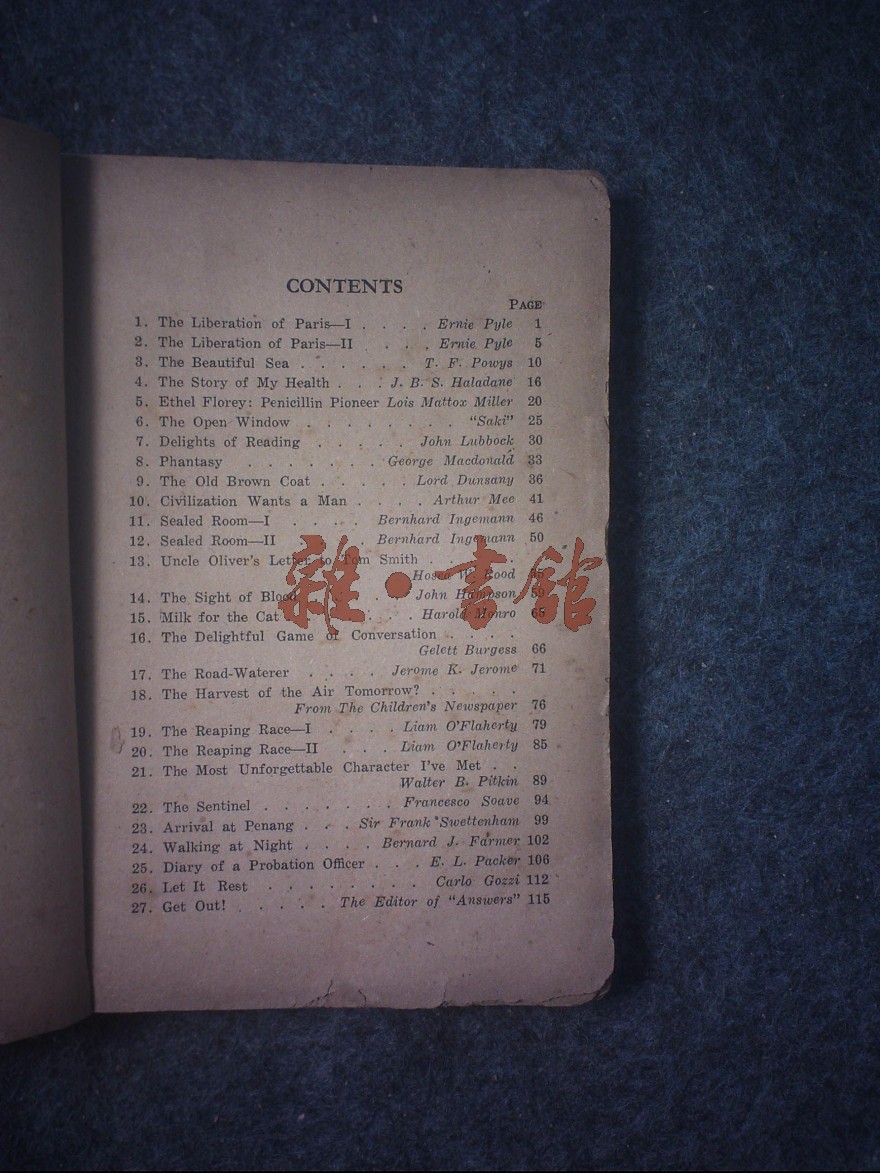 CONTENTS
PAGE
1. The Liberation of Paris—I . . . . Ernie Pyle 1
2. The Liberation of Paris—II . . . . Ernie Pyle 5
3. The Beautiful Sea . . . . . . T. F. Powys 10
4. The Story of My Health . . . J. B. S. Haladane 16
5. Ethel Florey: Penicillin Pioneer Lois Mattox Miller 20
6. The Open Window . . . . . . . . "Saki" 25
7. Delights of Reading . . . . . John Lubbock 30
8. Phantasy . . . . . . . George Macdonald 33
9. The Old Brown Coat . . . . . Lord Dunsany 36
10. Civilization Wants a Man . . . . Arthur Mee 41
11. Sealed Room—I . . . . Bernhard Ingemann 46
12. Sealed Room—II . . . . Bernhard Ingemann 50
13. Uncle Oliver's Letter to Tom Smith . . . . .
Hosea W. Rood
14. The Sight of Blood . . . . John Hampson 59
15. Milk for the Cat . . . . . Harold Monro 65
16. The Delightful Game of Conversation . . . .
Gelett Burgess 66
17. The Road-Waterer . . . . Jerome K. Jerome 71
18. The Harvest of the Air Tomorrow? . . . . .
From The Children's Newspaper 76
19. The Reaping Race—I . . . . Liam O'Flaherty 79
20. The Reaping Race—II . . . Liam O'Flaherty 85
21. The Most Unforgettable Character I've Met . .
Walter B. Pitkin 89
22. The Sentinel . . . . . . . Francesco Soave 94
23. Arrival at Penang . . . Sir Frank Swettenham 99
24. Walking at Night . . . . Bernard J. Farmer 102
25. Diary of a Probation Officer . . . E. L. Packer 106
26. Let It Rest . . . . . . . . Carlo Gozzi 112
27. Get Out! . . . . . The Editor of "Answers" 115
雜·書館